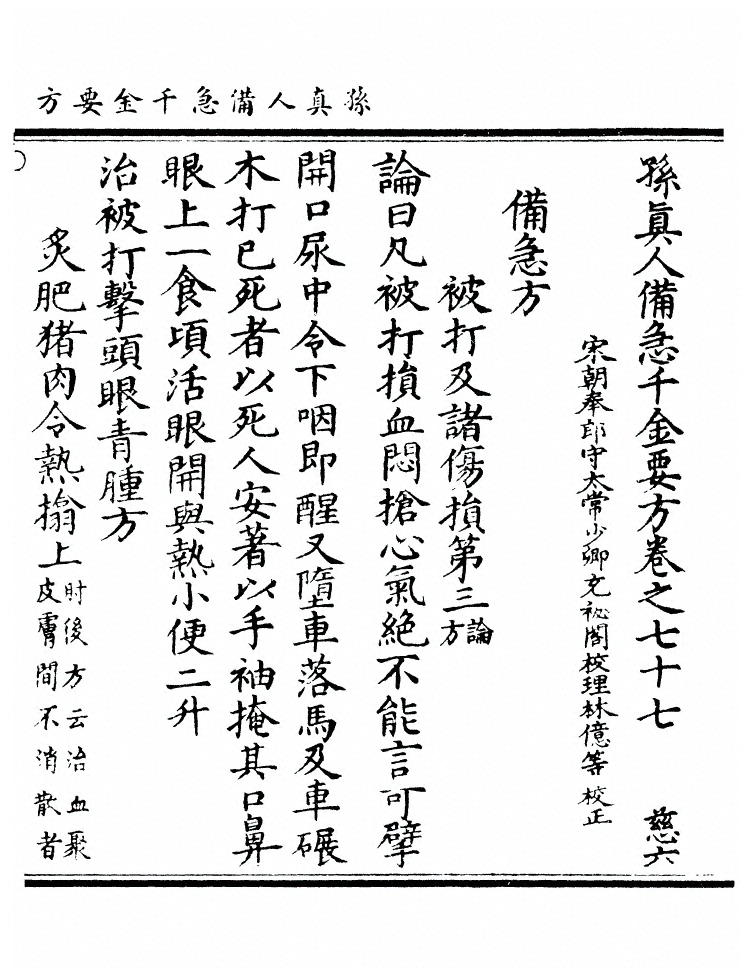 孫真人備急千金要方
孫眞人備急千金要方卷之七十七　慈六
宋朝奉郎守太常少卿充祕閣校理林億等校正
備急方
被打及諸傷損第三論方
論曰凡被打損血悶搶心氣絶不能言可擘
開口尿中令下咽即醒又墮車落馬及車碾
木打已死者以死人安著以手袖掩其口鼻
眼上一食頃活眼開與熱小便二升
治被打擊頭眼青腫方
炙肥猪肉令熱搨上肘後方云治血聚皮膚間不消散者